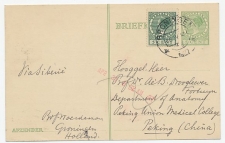 BRIEFK
Via Siberië
Hooggel. Heer
Prof. Dr. A.B. Droogleever
Fortuyn
Department of Anatomy
Peking Union Medical College
Peking (China)
AFZENDER:
Prof. 
Groningen
Holland